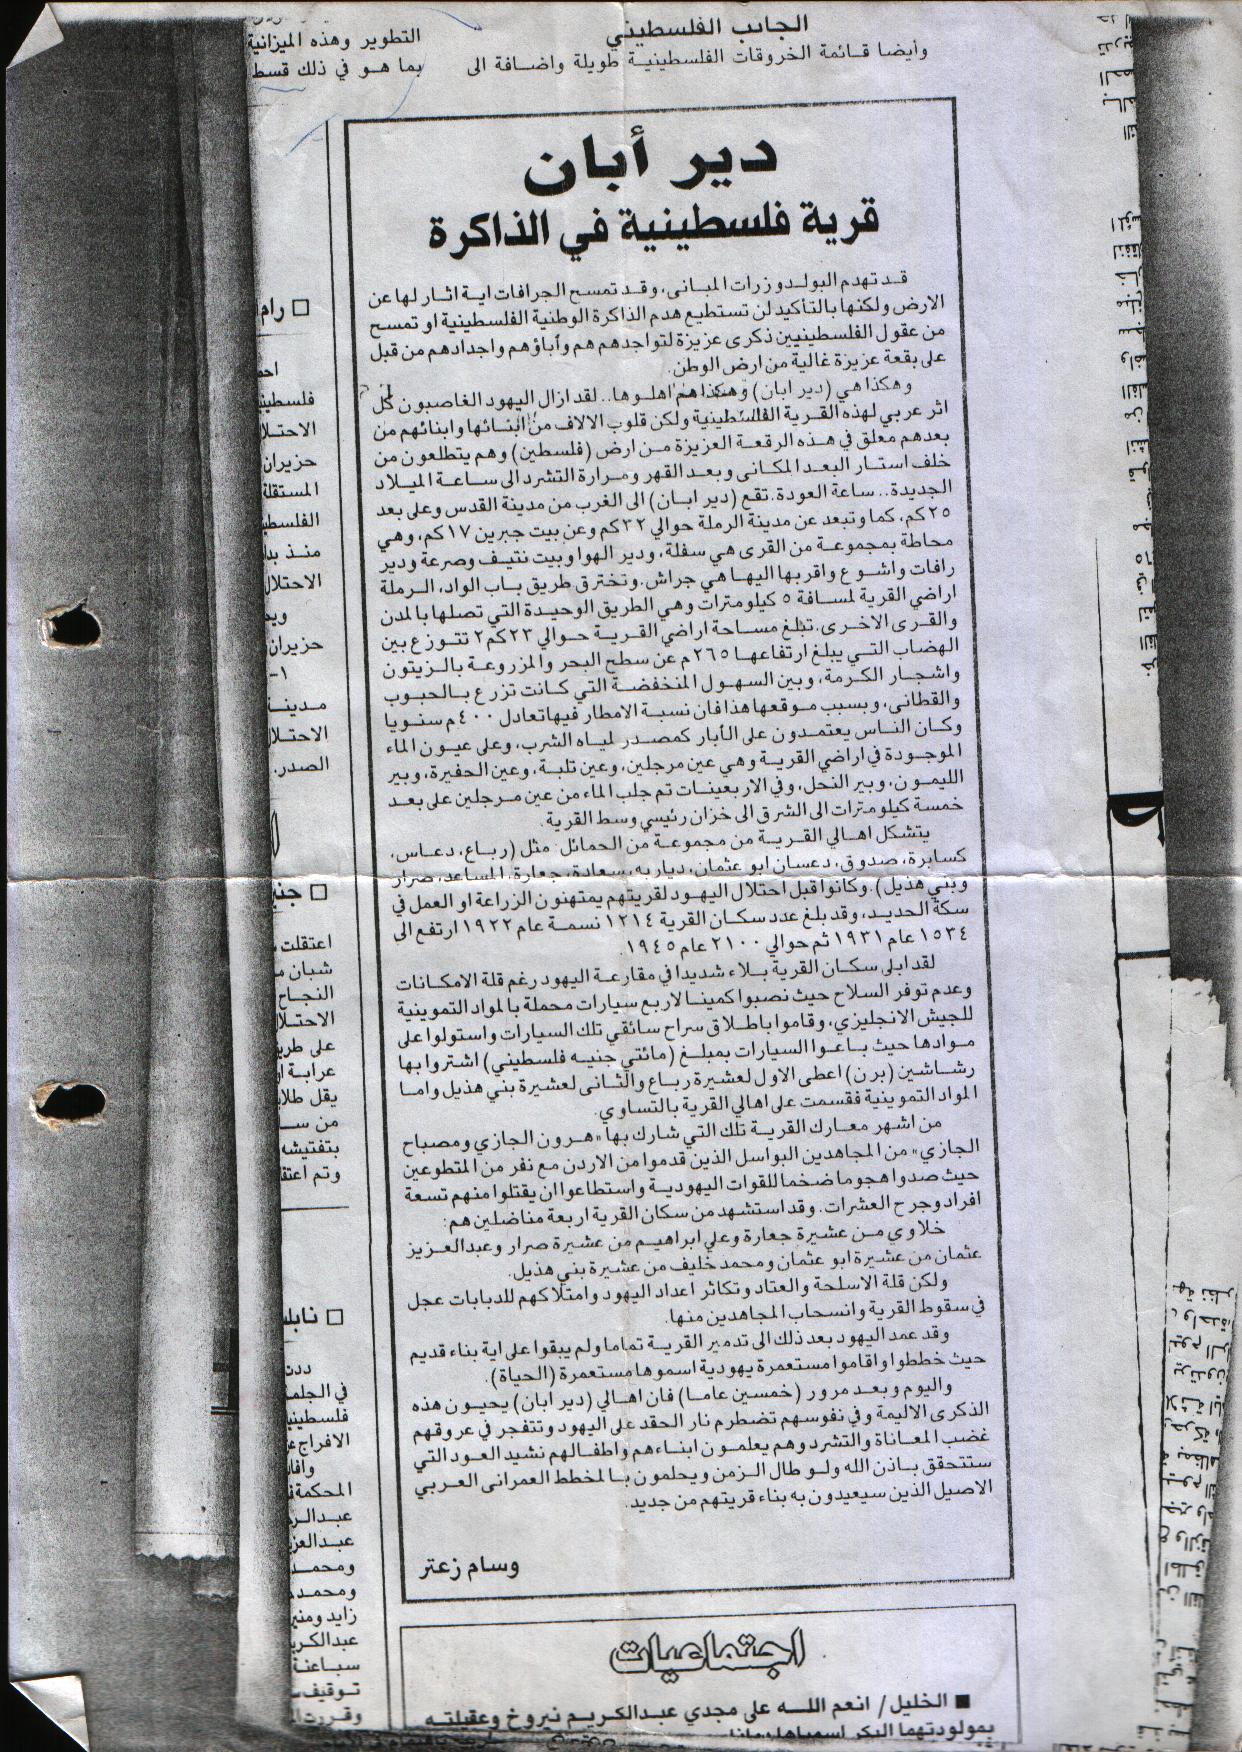 الجانب الفلسطيني
وأيضا قائمة الخروقات الفلسطينية طويلة واضافة الى
التطوير وهذه الميزانية
بما هو في ذلك قسط
دير أبان
قرية فلسطينية في الذاكرة
قد تهدم البولدوزرات المبانى، وقد تمسح الجرافات اية اثار لها عن
الارض ولكنها بالتأكيد لن تستطيع هدم الذاكرة الوطنية الفلسطينية او تمسح
من عقول الفلسطينيين ذكرى عزيزة لتواجدهم هم وأباؤهم واجدادهم من قبل
على بقعة عزيزة غالية من ارض الوطن.
وهكذا هي (دير ابان) وهكذا هم اهلوها.. لقد ازال اليهود الغاصبون كل
اثر عربي لهذه القرية الفلسطينية ولكن قلوب الالاف من ابنائها وابنائهم من
بعدهم معلق في هذه الرقعة العزيزة من ارض (فلسطين) وهم يتطلعون من
خلف استار البعد المكانى وبعد القهر ومرارة التشرد الى ساعة الميلاد
الجديدة.. ساعة العودة. تقع (دير ابان) الى الغرب من مدينة القدس وعلى بعد
٢٥كم، كما وتبعد عن مدينة الرملة حوالي ٣٢كم وعن بيت جبرين ١٧كم، وهي
محاطة بمجموعة من القرى هي سفلة، ودير الهوا وبيت نتيف وصرعة ودير
رافات واشوع واقربها اليها هي جراش. وتخترق طريق باب الواد، الرملة
اراضي القرية لمسافة ٥ كيلومترات وهي الطريق الوحيدة التي تصلها بالمدن
والقرى الاخرى. تبلغ مساحة اراضي القرية حوالي ٢٣كم٢ تتوزع بين
الهضاب التي يبلغ ارتفاعها ٢٦٥م عن سطح البحر والمزروعة بالزيتون
واشجار الكرمة، وبين السهول المنخفضة التي كانت تزرع بالحبوب
والقطانى، وبسبب موقعها هذا فان نسبة الامطار فيها تعادل ٤٠٠م سنويا
وكان الناس يعتمدون على الأبار كمصدر لمياه الشرب، وعلى عيون الماء
الموجودة في اراضي القرية وهي عين مرجلين، وعين تلبة، وعين الحفيرة، وبير
الليمون، وبير النحل، وفي الاربعينات تم جلب الماء من عين مرجلين على بعد
خمسة كيلومترات الى الشرق الى خزان رئيسي وسط القرية.
يتشكل اهالي القرية من مجموعة من الحمائل: مثل (رباع، دعاس،
كسابرة، صدوق، دعسان ابو عثمان، دياربه، سعادة، جعارة، المساعد، صرار
وبني هذيل). وكانوا قبل احتلال اليهود لقريتهم يمتهنون الزراعة او العمل في
سكة الحديد، وقد بلغ عدد سكان القرية ١٢١٤ نسمة عام ١٩٢٢ ارتفع الى
١٥٣٤ عام ١٩٣١ ثم حوالي ٢١٠٠ عام ١٩٤٥.
لقد ابلى سكان القرية بلاء شديدا في مقارعة اليهود رغم قلة الامكانات
وعدم توفر السلاح حيث نصبوا كمينا لاربع سيارات محملة بالمواد التموينية
للجيش الانجليزي، وقاموا باطلاق سراح سائقي تلك السيارات واستولوا على
موادها حيث باعوا السيارات بمبلغ (مائتي جنيه فلسطيني) اشتروا بها
رشاشين (برن) اعطى الاول لعشيرة رباع والثانى لعشيرة بني هذيل واما
المواد التموينية فقسمت على اهالي القرية بالتساوي.
من اشهر معارك القرية تلك التي شارك بها «هرون الجازي ومصباح
الجازي» من المجاهدين البواسل الذين قدموا من الاردن مع نفر من المتطوعين
حيث صدوا هجوما ضخما للقوات اليهودية واستطاعوا ان يقتلوا منهم تسعة
افراد وجرح العشرات. وقد استشهد من سكان القرية اربعة مناضلين هم:
خلاوي من عشيرة جعارة وعلي ابراهيم من عشيرة صرار وعبدالعزيز
عثمان من عشيرة ابو عثمان ومحمد خليف من عشيرة بني هذيل.
ولكن قلة الاسلحة والعتاد وتكاثر اعداد اليهود وامتلاكهم للدبابات عجل
في سقوط القرية وانسحاب المجاهدين منها.
وقد عمد اليهود بعد ذلك الى تدمير القرية تماما ولم يبقوا على اية بناء قديم
حيث خططوا واقاموا مستعمرة يهودية اسموها مستعمرة (الحياة).
واليوم وبعد مرور (خمسين عاما) فان اهالي (دير ابان) يحيون هذه
الذكرى الاليمة وفي نفوسهم تضطرم نار الحقد على اليهود وتتفجر في عروقهم
غضب المعاناة والتشرد وهم يعلمون ابناءهم واطفالهم نشيد العود التي
ستتحقق باذن الله ولو طال الزمن ويحلمون بالمخطط العمرانى العربي
الاصيل الذين سيعيدون به بناء قريتهم من جديد.
وسام زعتر
اجتماعيات
■ الخليل/ انعم الله على مجدي عبدالكريم نيروخ وعقيلته
بمولودتهما البكر اسمياها
□ رام
فلسطيني
الاحتلال
حزيران
المستقلة
منذ بد
الاحتلال
ويد
حزيران
١-
مدينة
الاحتلال
الصدر.
□ جني
اعتقلت
شبان
النجاح
الاحتلا
على طري
عرابة
يقل طلا
من
بتفتيشه
وتم اعتقا
□ نابلس
في الجلمة
فلسطيني
الافراج
المحكمة
ومحمد
ومحمد
زايد ومني
عبدالكري
سباعنة
توقيف
وقررت